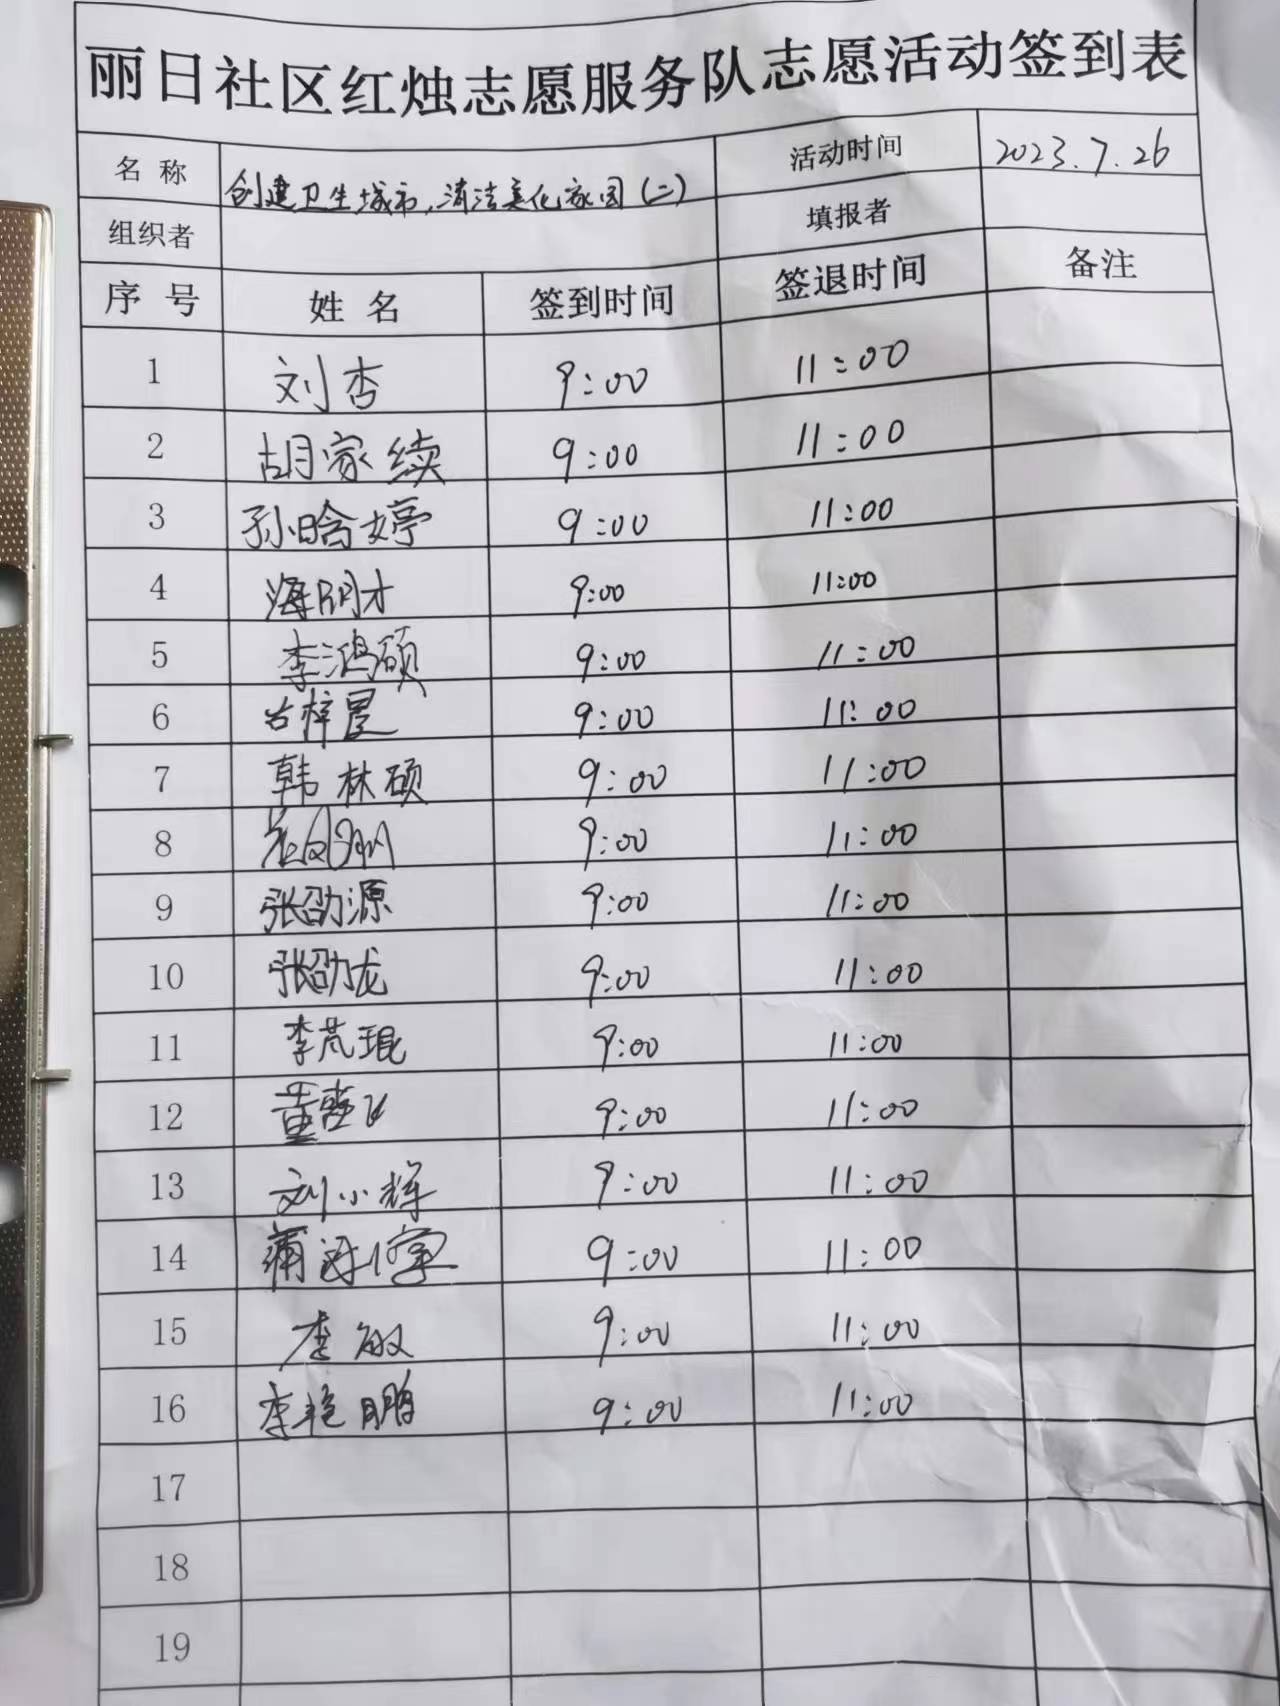 丽日社区红烛志愿服务队志愿活动签到表
名 称 创建卫生城市，清洁美化家园（二） 活动时间 2023.7.26
组织者 填报者
序 号 姓 名 签到时间 签退时间 备注
1 刘杏 9:00 11:00
2 胡家续 9:00 11:00
3 孙晗婷 9:00 11:00
4 海明才 9:00 11:00
5 李鸿硕 9:00 11:00
6 古梓晨 9:00 11:00
7 韩林硕 9:00 11:00
8 9:00 11:00
9 张劭源 9:00 11:00
10 张劭龙 9:00 11:00
11 李芃琨 9:00 11:00
12 9:00 11:00
13 刘小辉 9:00 11:00
14 9:00 11:00
15 李敏 9:00 11:00
16 李艳鹏 9:00 11:00
17
18
19